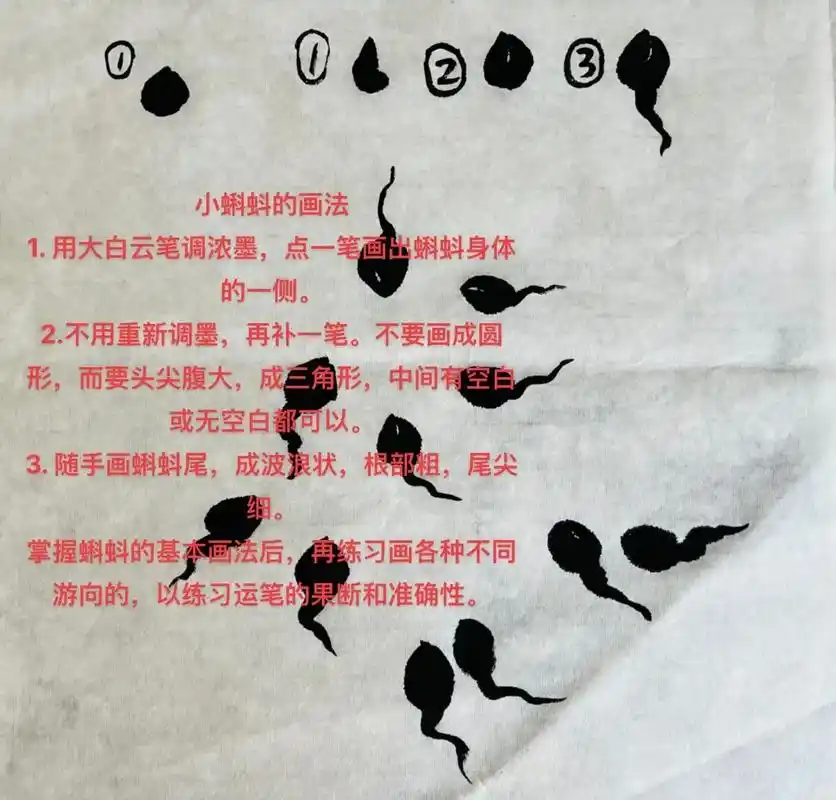 ① ① ② ③
小蝌蚪的画法
1. 用大白云笔调浓墨，点一笔画出蝌蚪身体
的一侧。
2.不用重新调墨，再补一笔。不要画成圆
形，而要头尖腹大，成三角形，中间有空白
或无空白都可以。
3. 随手画蝌蚪尾，成波浪状，根部粗，尾尖
细。
掌握蝌蚪的基本画法后，再练习画各种不同
游向的，以练习运笔的果断和准确性。